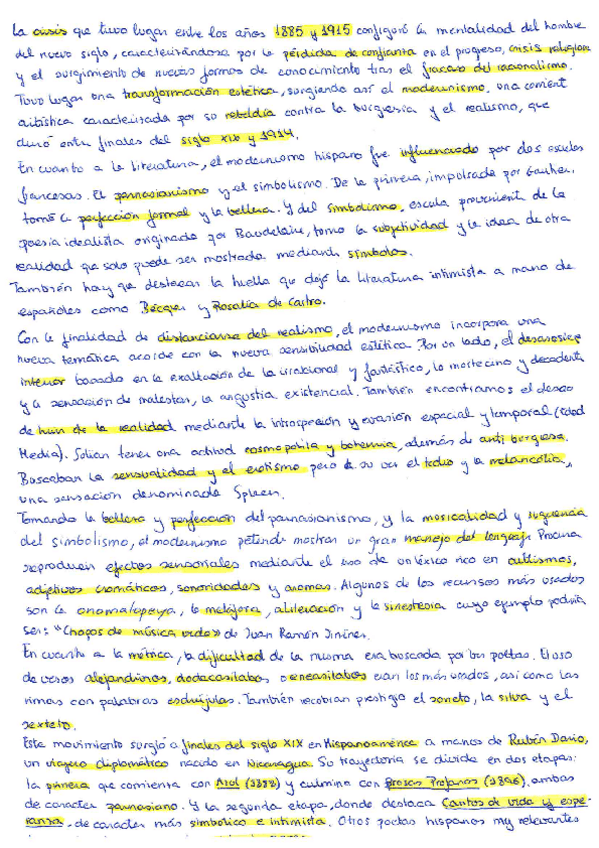 La crisis que tuvo lugar entre los años 1885 y 1915 configuró la mentalidad del hombre
del nuevo siglo, caracterizándose por la pérdida de confianza en el progreso, crisis religiosa
y el surgimiento de nuevas formas de conocimiento tras el fracaso del racionalismo.
Tuvo lugar una transformación estética, surgiendo así el modernismo, una corriente
artística caracterizada por su rebeldía contra la burguesía y el realismo, que
duró entre finales del siglo XIX y 1914.
En cuanto a la literatura, el modernismo hispano fue influenciado por dos escuelas
francesas. El parnasianismo y el simbolismo. De la primera, impulsada por Gautier,
tomó la perfección formal y la belleza. Y del simbolismo, escuela proveniente de la
poesía idealista originada por Baudelaire, tomo la subjetividad y la idea de otra
realidad que solo puede ser mostrada mediante símbolos.
También hay que destacar la huella que dejó la literatura intimista a mano de
españoles como Bécquer y Rosalía de Castro.
Con la finalidad de distanciarse del realismo, el modernismo incorpora una
nueva temática acorde con la nueva sensibilidad estética. Por un lado, el desasosiego
interior basado en la exaltación de lo irracional y fantástico, lo mortecino y decadente
y la sensación de malestar, la angustia existencial. También encontramos el deseo
de huir de la realidad mediante la introspección y evasión espacial y temporal (Edad
Media). Solían tener una actitud cosmopolita y bohemia, además de anti burguesa.
Buscaban la sensualidad y el erotismo pero a su vez el tedio y la melancolía,
una sensación denominada Spleen.
Tomando la belleza y perfección del parnasianismo, y la musicalidad y sugerencia
del simbolismo, el modernismo pretende mostrar un gran manejo del lenguaje. Procura
reproducir efectos sensoriales mediante el uso de un léxico rico en cultismos,
adjetivos cromáticos, sonoridades y aromas. Algunos de los recursos más usados
son la onomatopeya, la metáfora, aliteración y la sinestesia cuyo ejemplo podría
ser: "Chopos de música verde» de Juan Ramón Jiménez.
En cuanto a la métrica, la dificultad de la misma era buscada por los poetas. El uso
de versos alejandrinos, dodecasílabos o eneasílabos eran los más usados, así como las
rimas con palabras esdrújulas. También recobran prestigio el soneto, la silva y el
sexteto.
Este movimiento surgió a finales del siglo XIX en Hispanoamérica a manos de Rubén Darío,
un viajero diplomático nacido en Nicaragua. Su trayectoria se divide en dos etapas:
la primera que comienza con Azul (1888) y culmina con Prosas Profanas (1896), ambas
de caracter parnasiano. Y la segunda etapa, donde destaca Cantos de vida y espe-
ranza, de caracter más simbólico e intimista. Otros poetas hispanos muy relevantes